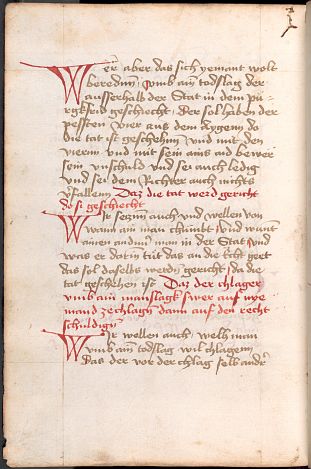 Wer aber das sich yemant wolt
berednn vmb ain todslag der
ausserhalb der Stat in dem pu-
rgkfrid geschiecht Der sol haben der
pessten vier aus dem Aygenn do
die tat ist geschehnn Vnd mit den
viernn vnd mit seim ains aid bewer
sein vnschuld Vnd sei auch ledig
vnd sei dem Richter auch nichts
vfallenn Daz die tat werd gericht
do si geschiecht
Wir secznn auch vnd wellen von
wann ain man chumbt vnd wunt
ainen andnn man in der Stat vnd
was er darin tut das an die Echt geet
das sol daselbs werdn gericht da die
tat geschehen ist Daz der chlager
vmb ain manslagk swer auf nye
mand zechlagn dann auf den recht
schuldign
Wir wellen auch welh man
vmb ain todslag wil chlagenn
Das der vor der chlag selb andr